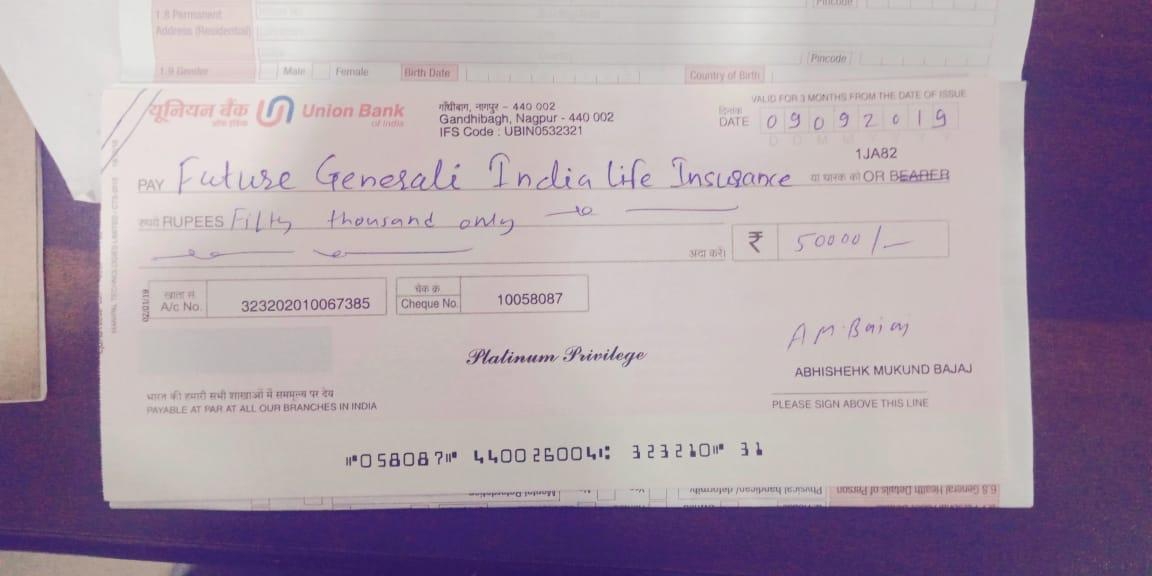 1.8 Permanent
Address (Residential)
Pincode
Pincode
1.9 Gender Male Female Birth Date Country of Birth
यूनियन बैंक Union Bank
of India
गाँधीबाग, नागपुर – 440 002
Gandhibagh, Nagpur - 440 002
IFS Code : UBIN0532321
VALID FOR 3 MONTHS FROM THE DATE OF ISSUE
दिनांक
DATE 09092019
D D M M Y Y Y Y
1JA82
PAY Future Generali India Life Insurance या धारक को OR BEARER
रुपये RUPEES Fifty thousand only
अदा करें। ₹ 50000/-
02/01/19
खाता सं.
A/c No. 323202010067385
चेक क्र.
Cheque No. 10058087
Platinum Privilege
A M Bajaj
ABHISHEHK MUKUND BAJAJ
भारत की हमारी सभी शाखाओं में सममूल्य पर देय
PAYABLE AT PAR AT ALL OUR BRANCHES IN INDIA
PLEASE SIGN ABOVE THIS LINE
⑈058087⑈ 440026004⑆ 323210⑈ 31
6.8 General Health Details of Person
Physical handicap/ deformity